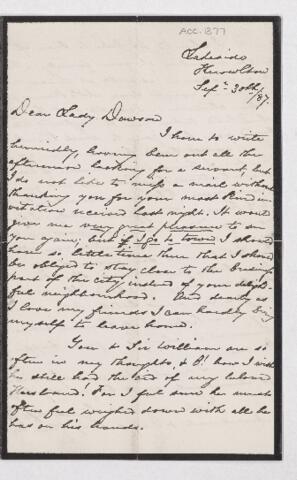 ACC. 1877
Hamilton
Sep. 30th/87.
Dear Lady Dawson
I have to write
hurriedly, having been out all the
afternoon looking for a servant, but
I do not like to miss a mail without
thanking you for your most kind in-
vitation received last night. It would
give me very great pleasure to see
you again, but if I go to town I should
have so little time there that I should
be obliged to stay close to the business
part of the city instead of your delight-
ful neighbourhood. And dearly as
I love my friends I can hardly bring
myself to leave home.
You & Sir William are so
often in my thoughts, & O! how I wish
he still had the aid of my beloved
Husband. For I feel sure he must
often feel weighed down with all he
has on his hands.